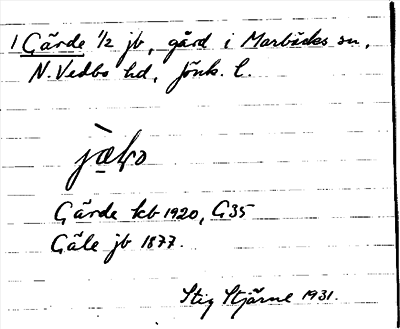 1 Gärde 1/2 jb, gård i Marbäcks sn,
N. Vedbo hd, Jönk. l.
Gärde kb 1920, G35
Gäle jb 1877.
Stig Stjärne 1931.